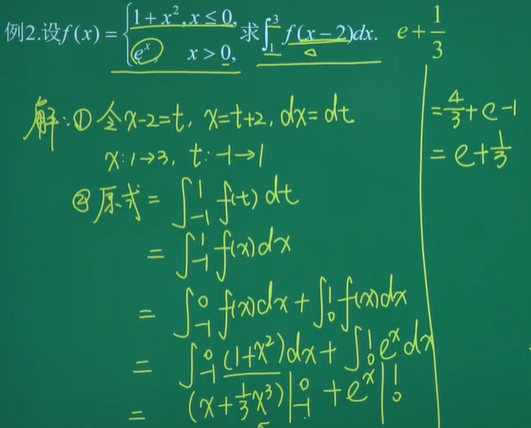 例2.设f(x)={1+x², x≤0, eˣ, x>0, 求∫₁³f(x-2)dx. e+1/3
解:① 令x-2=t, x=t+2, dx=dt
x:1→3, t:-1→1
② 原式=∫₋₁¹f(t)dt
=∫₋₁¹f(x)dx
=∫₋₁⁰f(x)dx+∫₀¹f(x)dx
=∫₋₁⁰(1+x²)dx+∫₀¹eˣdx
=(x+1/3x³)|₋₁⁰+eˣ|₀¹
=4/3+e-1
=e+1/3